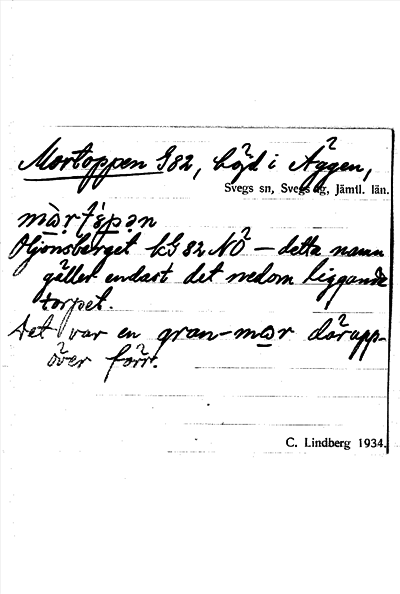 Mortoppen G82, höjd i Äggen,
Svegs sn, Svegs tg, Jämtl. län.
Öjonsberget kG 82 NÖ – detta namn
gäller endast det nedom liggande
torpet.
Det var en gran-mor däruppöver förr.
C. Lindberg 1934.